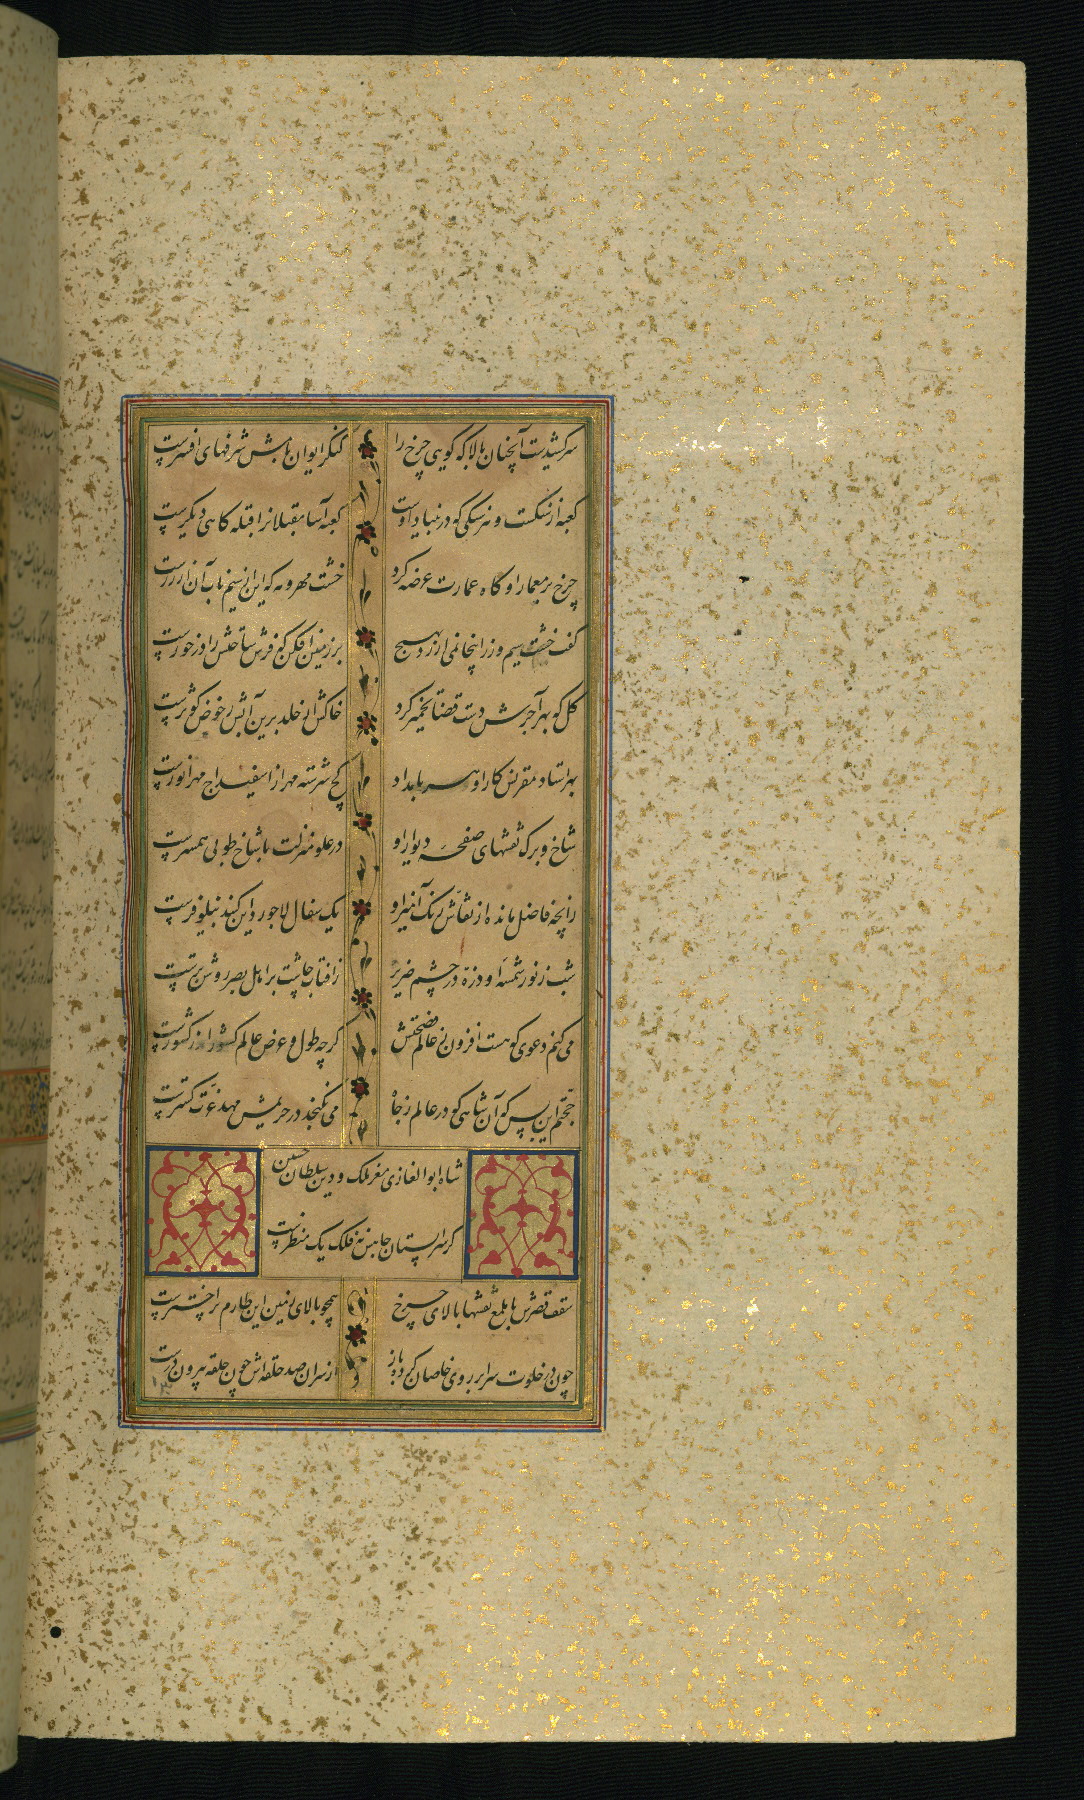 سر کشیدست آنچنان بالا که گویی چرخ را کنگر ایوان هابش شرفهای افسرست
کعبه از سنگست و هر سنگی که در بنیاد اوست کعبه آسا مقبلانرا قبله کاهی دیگرست
چرخ بر معمار او کاه عمارت عرضه کرد خشت مهر و مه که این از سیم ناب آن از زرست
گفت خشت سیم و زر اینجا نمی ارزد بهیچ بر زمین افکن که فرش ساحتش را در خورست
گل که بهر آجرش دست قضا تخمیر کرد خاکش از خلد برین آبش ز حوض کوثرست
بهر استاد مقرنس کار او هر بامداد گچ سرشته مهر از اسفیداج مهر انورست
شاخ و برگ نقشهای صفحه دیوار او در علو منزلت با شاخ طوبی همسرست
زانچه فاضل مانده از نقاش رنگ آمیز او یک سفال لاجورد این گنبد نیلوفرست
شب ز نور شمسه او ذره در چشم ضریر ز افتاب چاشت بر اهل بصر روشن ترست
می کنم دعوی که هست افزون ز عالم فسحتش گرچه طول و عرض عالم کشور از کشورست
حجتم این بس که آن شاهی که در عالم ز جاه می نگنجد در حریمش مهد عزت گسترست
شاه ابو الغازی معز ملک و دین سلطان حسین
کز سرابستان جاهش نه فلک یک منظرست
سقف قصرش با ملمع نقشها بالای چرخ همچو بالای زمین این طارم پر اخترست
چون در خلوت سرا بر روی خاصان کرده باز از سران صد حلقه اش چون حلقه بیرون درست